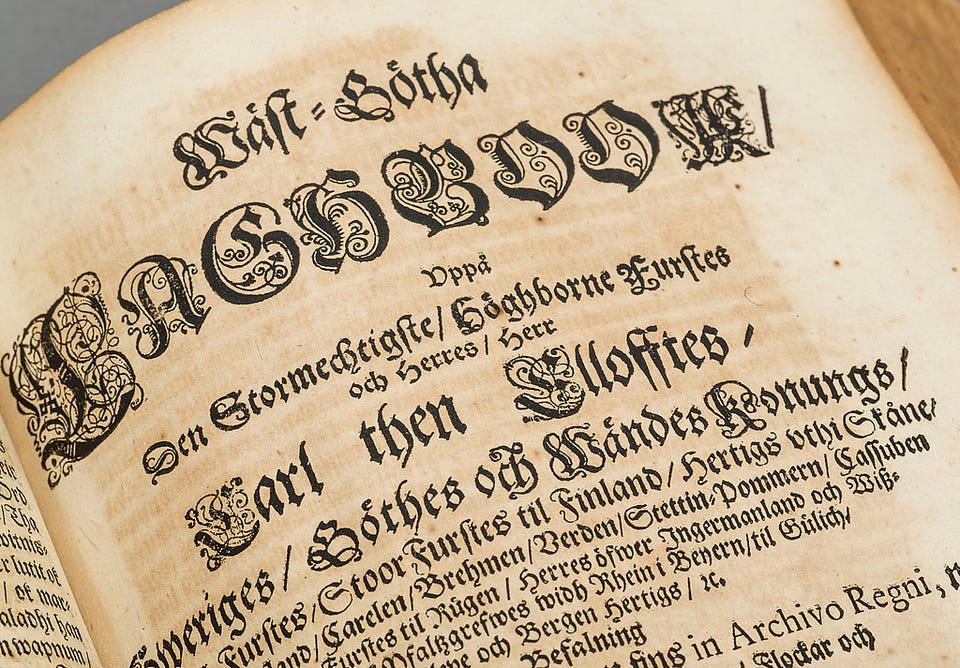 Wäst-Götha
LAGHBOOK/
Vppå
Den Stormechtigste/ Höghborne Furstes
och Herres/ Herr
Carl then Ellofftes,
Sweriges/ Göthes och Wändes Konungs/
Furstes/ Stoor Furstes til Finland/ Hertigs vthi Skåne/
land/ Carelen/ Brehmen/ Verden/ Stettin-Pommern/ Cassuben
Furstes til Rügen/ Herres öfwer Ingermanland och Wiß-
Pfaltzgrefwes widh Rhein i Beyern/ til Gülich/
och Bergen Hertigs/ ꝛc.
Befalning
fins in Archivo Regni,
Flockar och